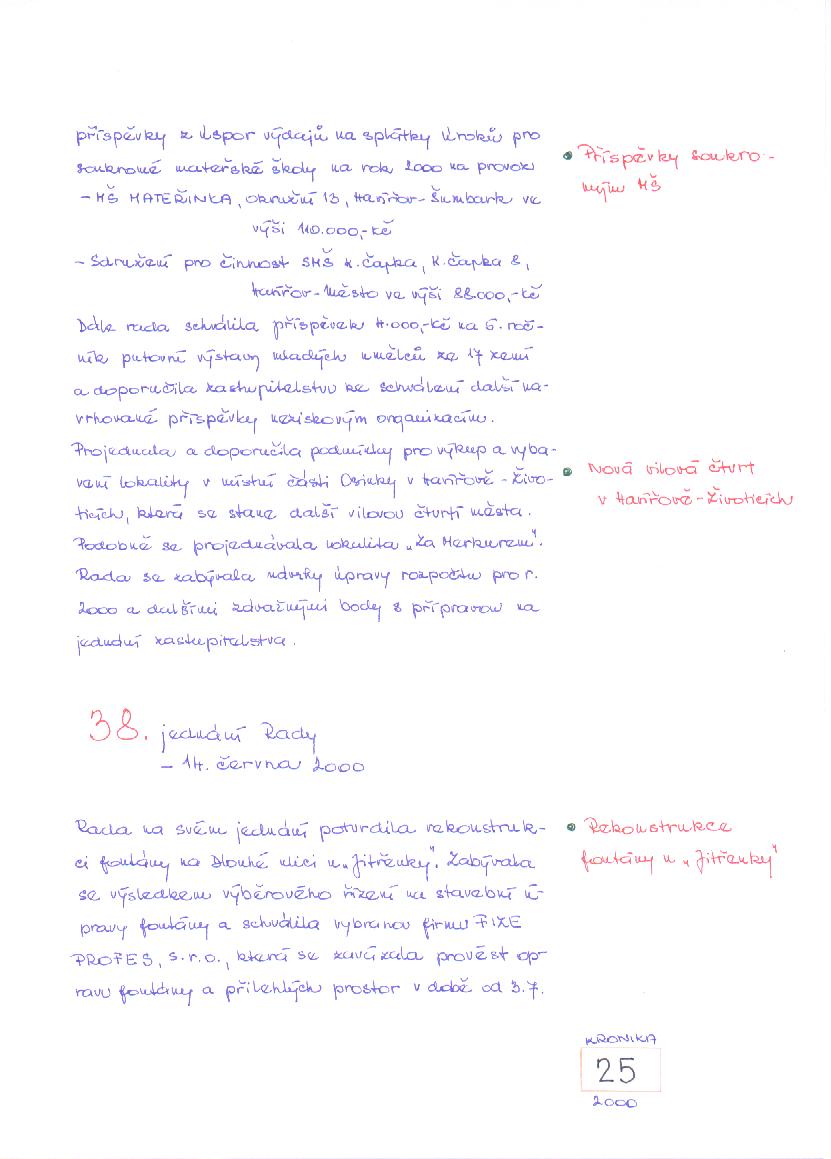 příspěvky z úspor výdajů na splátky úroků pro
soukromé mateřské školy na rok 2000 na provoz
– MŠ MATEŘINKA, okružní 13, Havířov-Šumbark ve
výši 110.000,-kč
– Sdružení pro činnost SMŠ K.Čapka, K.Čapka 8,
Havířov-Město ve výši 88.000,-kč
Dále rada schválila příspěvek 4.000,-kč na 5. roč-
ník putovní výstavy mladých umělců ze 17 zemí
a doporučila zastupitelstvu ke schválení další na-
vrhované příspěvky neziskovým organizacím.
Projednala a doporučila podmínky pro výkup a vyba-
vení lokality v místní části Osinky v Havířově-Živo-
ticích, která se stane další vilovou čtvrtí města.
Podobně se projednávala lokalita „Za Merkurem“.
Rada se zabývala návrhy úpravy rozpočtu pro r.
2000 a dalšími závažnými body s přípravou na
jednání zastupitelstva.
• Příspěvky soukro-
mým MŠ
• Nová vilová čtvrt
v Havířově-Životicích
38. jednání Rady
– 14. června 2000
Rada na svém jednání potvrdila rekonstruk-
ci fontány na Dlouhé ulici u „Jitřenky“. Zabývala
se výsledkem výběrového řízení na stavební ú-
pravy fontány a schválila vybranou firmu FIXE
PROFES, s.r.o., která se zavázala provést op-
ravu fontány a přilehlých prostor v době od 3.7.
• Rekonstrukce
fontány u „Jitřenky“
KRONIKA
25
2000